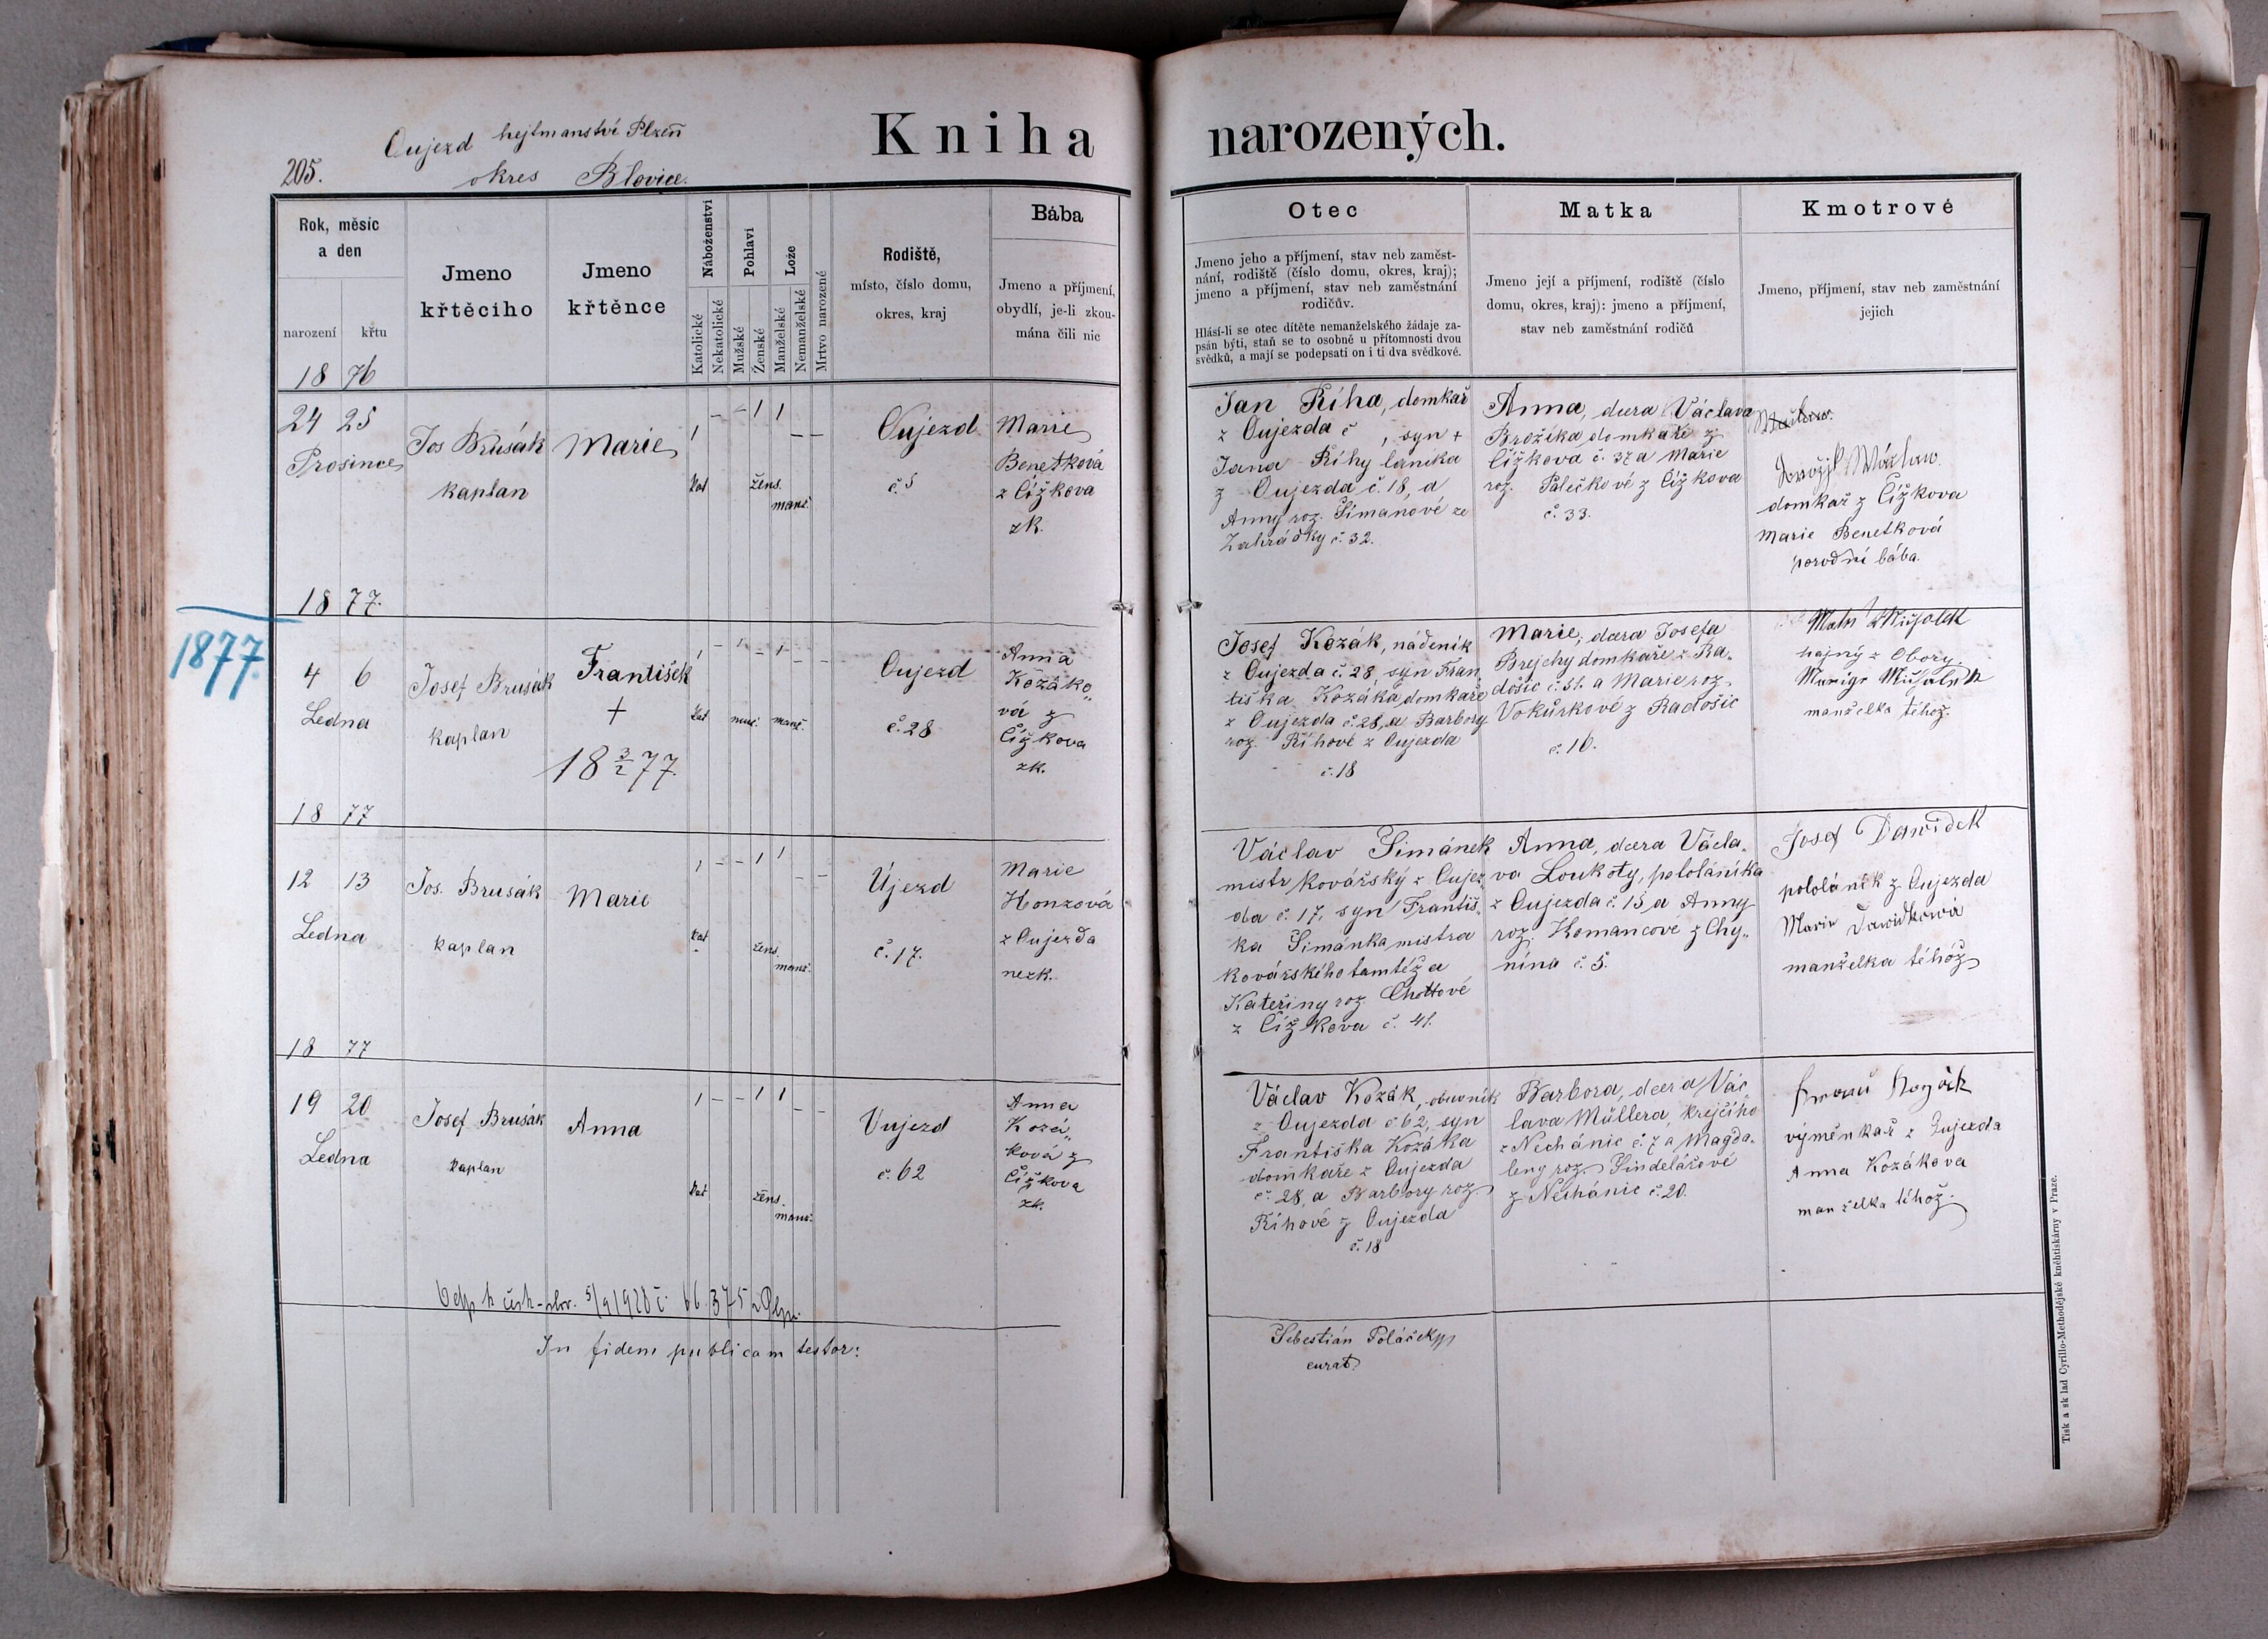 Oujezd hejtmanství Plzeň
205.
okres Blovice.
Kniha narozených.
Rok, měsíc
a den
narození křtu
Jmeno
křtěcího
Jmeno
křtěnce
Náboženství
Katolické
Nekatolické
Pohlaví
Mužské
Ženské
Lože
Manželské
Nemanželské
Mrtvo narozené
Rodiště,
místo, číslo domu,
okres, kraj
Bába
Jmeno a příjmení,
obydlí, je-li zkou-
mána čili nic
Otec
Jmeno jeho a příjmení, stav neb zaměst-
nání, rodiště (číslo domu, okres, kraj);
jmeno a příjmení, stav neb zaměstnání
rodičův.
Hlásí-li se otec dítěte nemanželského žádaje za-
psán býti, staň se to osobně u přítomnosti dvou
svědků, a mají se podepsati on i ti dva svědkové.
Matka
Jmeno její a příjmení, rodiště (číslo
domu, okres, kraj): jmeno a příjmení,
stav neb zaměstnání rodičů
Kmotrové
Jmeno, příjmení, stav neb zaměstnání
jejich
18 76
24 25
Prosince
Jos Brusák
kaplan
Marie
1 – – 1 1 – –
kat žens. manž.
Oujezd
č. 5
Marie
Benetková
z Čížkova
zk.
Jan Říha, domkař
z Oujezda č , syn +
Jana Říhy láníka
z Oujezda č. 18, a
Anny roz. Šimanové ze
Zahrádky č. 32.
Anna, dcera Václava
Brožíka domkaře z
Čížkova č. 37 a Marie
roz. Palečkové z Čížkova
č. 33.
domkař z Čížkova
Marie Benetková
porodní bába.
18 77.
1877.
4 6
Ledna
Josef Brusák
kaplan
František
+
18 3/2 77.
1 – 1 – 1 – –
kat muž. manž.
Oujezd
č. 28
Anna
Kozáko„
vá z
Čížkova
zk.
Josef Kozák, nádeník
z Oujezda č. 28, syn Fran
tiška Kozáka domkaře
z Oujezda č. 28, a Barbory
roz. Říhové z Oujezda
č. 18
Marie, dcera Josefa
Brejchy domkaře z Ra„
došic č. 31. a Marie roz.
Vokůrkové z Radošic
č. 16.
hajný z Obory.
manželka téhož.
18 77
12 13
Ledna
Jos. Brusák
kaplan
Marie
1 – – 1 1 – –
kat žens. manž.
Újezd
č. 17.
Marie
Honzová
z Oujezda
nezk.
Václav Šimánek
mistr kovářský z Oujez„
da č. 17, syn Františ„
ka Šimánka mistra
kovářského tamtéž a
Kateřiny roz. Chottové
z Čížkova č. 41.
Anna, dcera Václa„
va Loukoty, pololáníka
z Oujezda č. 15, a Anny
roz. Homancové z Chy„
nína č. 5.
Josef Dawidek
pololáník z Oujezda
Marie Dawidkowá
manželka téhož
18 77
19 20
Ledna
Josef Brusák
kaplan
Anna
1 – – 1 1 – –
kat žens. manž.
Oujezd
č. 62
Anna
Kozá„
ková z
Čížkova
zk.
Václav Kozák, obuvník
z Oujezda č 62, syn
Františka Kozáka
domkaře z Oujezda
č. 28, a Barbory roz
Říhové z Oujezda
č. 18
Barbora, dcera Vác
lava Müllera, krejčího
z Nechánic č. 7 a Magda„
leny roz. Šindelářové
z Nechánic č. 20.
výměnkář z Oujezda
Anna Kozákova
manželka téhož.
In fidem publicam testor:
Sebestián Poláček
curat
Tisk a sklad Cyrillo-Methodějské knihtiskárny v Praze.